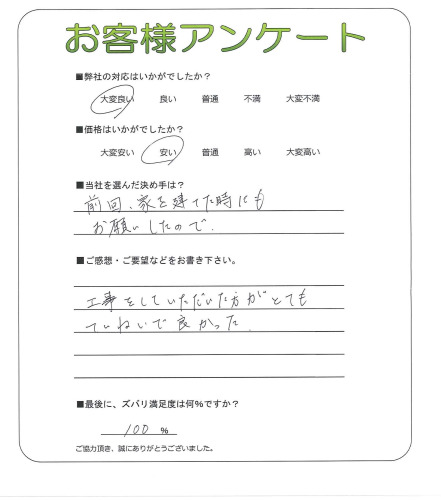 お客様アンケート
■弊社の対応はいかがでしたか？
大変良い 良い 普通 不満 大変不満
■価格はいかがでしたか？
大変安い 安い 普通 高い 大変高い
■当社を選んだ決め手は？
前回、家を建てた時にも
お願いしたので.
■ご感想・ご要望などをお書き下さい。
工事をしていただいた方がとても
ていねいで良かった.
■最後に、ズバリ満足度は何%ですか？
100 %
ご協力頂き、誠にありがとうございました。